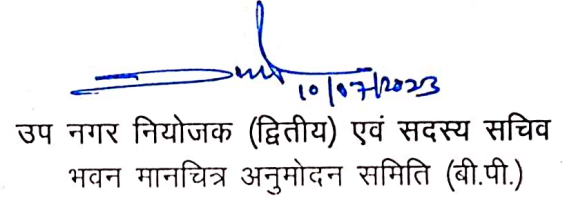 10/07/2023
उप नगर नियोजक (द्वितीय) एवं सदस्य सचिव
भवन मानचित्र अनुमोदन समिति (बी.पी.)